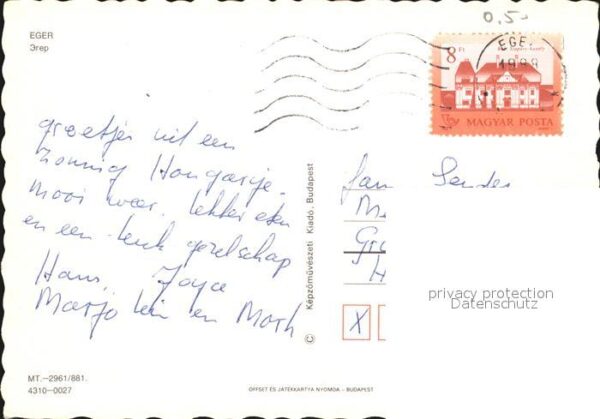 EGER
Эгер
0,5-
8 Ft
EGE
MAGYAR POSTA
groetjes uit een
zonnig Hongarije.
mooi weer, lekker eten
en een leuk gezelschap
Hans, Joyce
Marjolein en Moth
Képzőművészeti Kiadó, Budapest
©
Jan Sender
X
privacy protection
Datenschutz
MT.—2961/881.
4310—0027
OFFSET ÉS JÁTÉKKÁRTYA NYOMDA – BUDAPEST